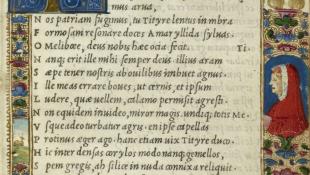 mus arua,
N os patriam fugimus, tu Tityre lentus in mbra
F ormosam resonare doces Amaryllida syluas.
O Meliboee, deus nobis haec ocia fecit. Ti.
N anq; erit ille mihi semper deus illius aram
S aepe tener nostris ab ouilibus imbuet agnus.
I lle meas errare boues, ut cernis, et ipsum
L udere, quae uellem, calamo permisit agresti.
N on equidem inuideo, miror magis. undiq; totis Me.
V sque adeo turbatur agris. en ipse capellas
P rotinus aeger ago. hanc etiam uix Tityre duco.
H ic inter densas corylos modo nanq; gemellos,
S pem gregis, ah silice in nuda connixa reliquit.